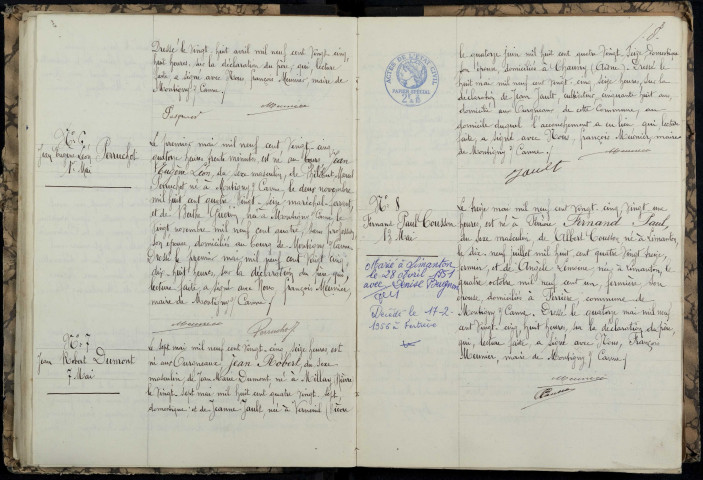 Dressé le vingt huit avril mil neuf cent vingt cinq,
huit heures, sur la déclaration du père, qui, lecture
faite, a signé avec Nous François Meunier, maire de
Montigny s/ Canne./.
Meunier
N° 6
Jean Eugène Léon Perruchot
1er Mai
Le premier mai mil neuf cent vingt cinq
heures trente minutes est né au bourg Jean
Eugène Léon, du sexe masculin, de Marcel
Perruchot né à Montigny s/ Canne, le deux novembre
mil huit cent quatre vingt seize maréchal ferrant,
et de Berthe née à Montigny s/ Canne le
vingt novembre mil neuf cent quatre, sans profession,
son épouse, domiciliés au bourg de Montigny s/ Canne.
Dressé le premier mai mil neuf cent vingt cinq,
dix huit heures, sur la déclaration du père qui,
lecture faite a signé avec Nous François Meunier,
maire de Montigny s/ Canne./.
Meunier
Perruchot
N° 7
Jean Robert Dumont
7 Mai
Le sept mai mil neuf cent vingt cinq, seize heures, est
né aux Jean Robert, du sexe
masculin, de Jean Marie Dumont né à Millay Nièvre
le vingt sept mai mil huit cent quatre vingt sept,
domestique et de Jeanne Jault, née à Verneuil (Nièvre
le quatorze juin mil huit cent quatre vingt seize domestique
épouse, domiciliés à Chauny (Aisne). Dressé le
huit mai mil neuf cent vingt cinq seize heures, sur la
déclaration de Jean Jault, cultivateur, cinquante huit ans,
domicilié aux de cette Commune, au
domicile duquel l'accouchement a eu lieu qui lecture
faite, a signé avec Nous, François Meunier, maire
de Montigny s/ Canne./.
Meunier
Jault
ACTES DE L'ETAT CIVIL
PAPIER SPECIAL
N° 8
Fernand Paul Cousson
13 Mai
Marié à Limanton
le 28 avril 1951
avec Denise
Décédé le 17-2-
Le treize mai mil neuf cent vingt cinq vingt une
heures est né à Fernand Paul,
du sexe masculin de Albert Cousson né à Limanton,
le dix neuf juillet mil huit cent quatre vingt treize,
fermier, et de Angèle Lemoine née à Limanton, le
quatre octobre mil neuf cent un, fermière, son
épouse, domiciliés à commune de
Montigny s/ Canne. Dressé le quatorze mai mil neuf
cent vingt cinq, huit heures, sur la déclaration du père,
qui, lecture faite a signé avec Nous, François
Meunier, maire de Montigny s/ Canne./.
Meunier